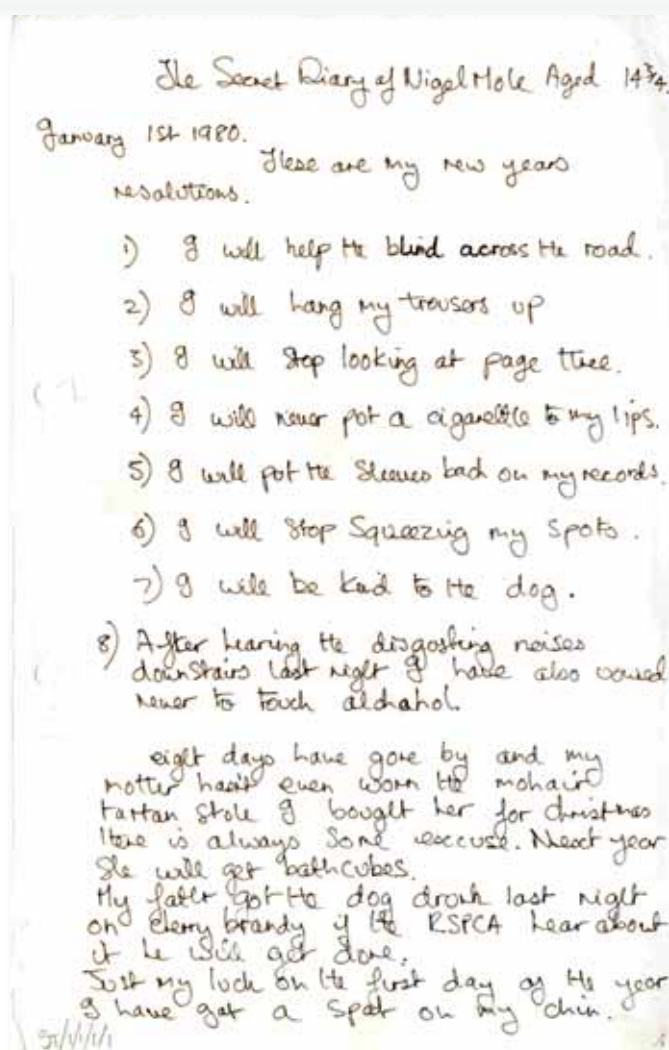 The Secret Diary of Nigel Mole Aged 14¾.
January 1st 1980.
These are my new years
resolutions.
1) I will help the blind across the road.
2) I will hang my trousers up
3) I will stop looking at page three.
4) I will never put a cigarette to my lips.
5) I will put the sleeves back on my records.
6) I will stop squeezing my spots.
7) I will be kind to the dog.
8) After hearing the disgosting noises
downstairs last night I have also vowed
never to touch alchahol.
eight days have gone by and my
mother hasn't even worn the mohair
tartan stole I bought her for christmas
there is always some exccuse. Next year
she will get bathcubes.
My father got the dog drunk last night
on cherry brandy if the RSPCA hear about
it he will get done.
Just my luck on the first day of the year
I have got a spot on my chin.